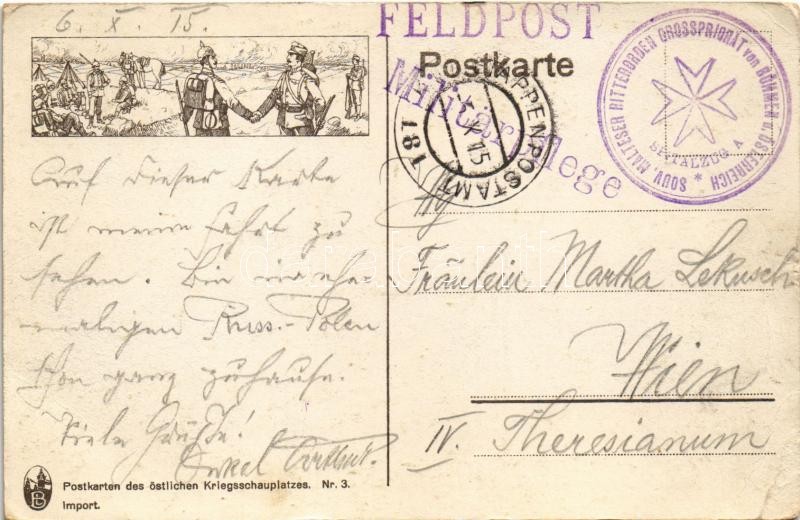 6. X. 15.
FELDPOST
Postkarte
Militärpflege
ETAPPENPOSTAMT
15
181
SOUV. MALTESER RITTERORDEN GROSSPRIORAT von BÖHMEN u. ÖSTERREICH *
SPITALZUG A
Auf dieser Karte
ist meine Fahrt zu
sehen. Bin im ehe-
maligen Russ.-Polen
schon ganz zuhause.
Viele Grüße!
Onkel Arthur.
Fräulein Martha Lekusch
Wien
IV. Theresianum
Postkarten des östlichen Kriegsschauplatzes. Nr. 3.
Import.